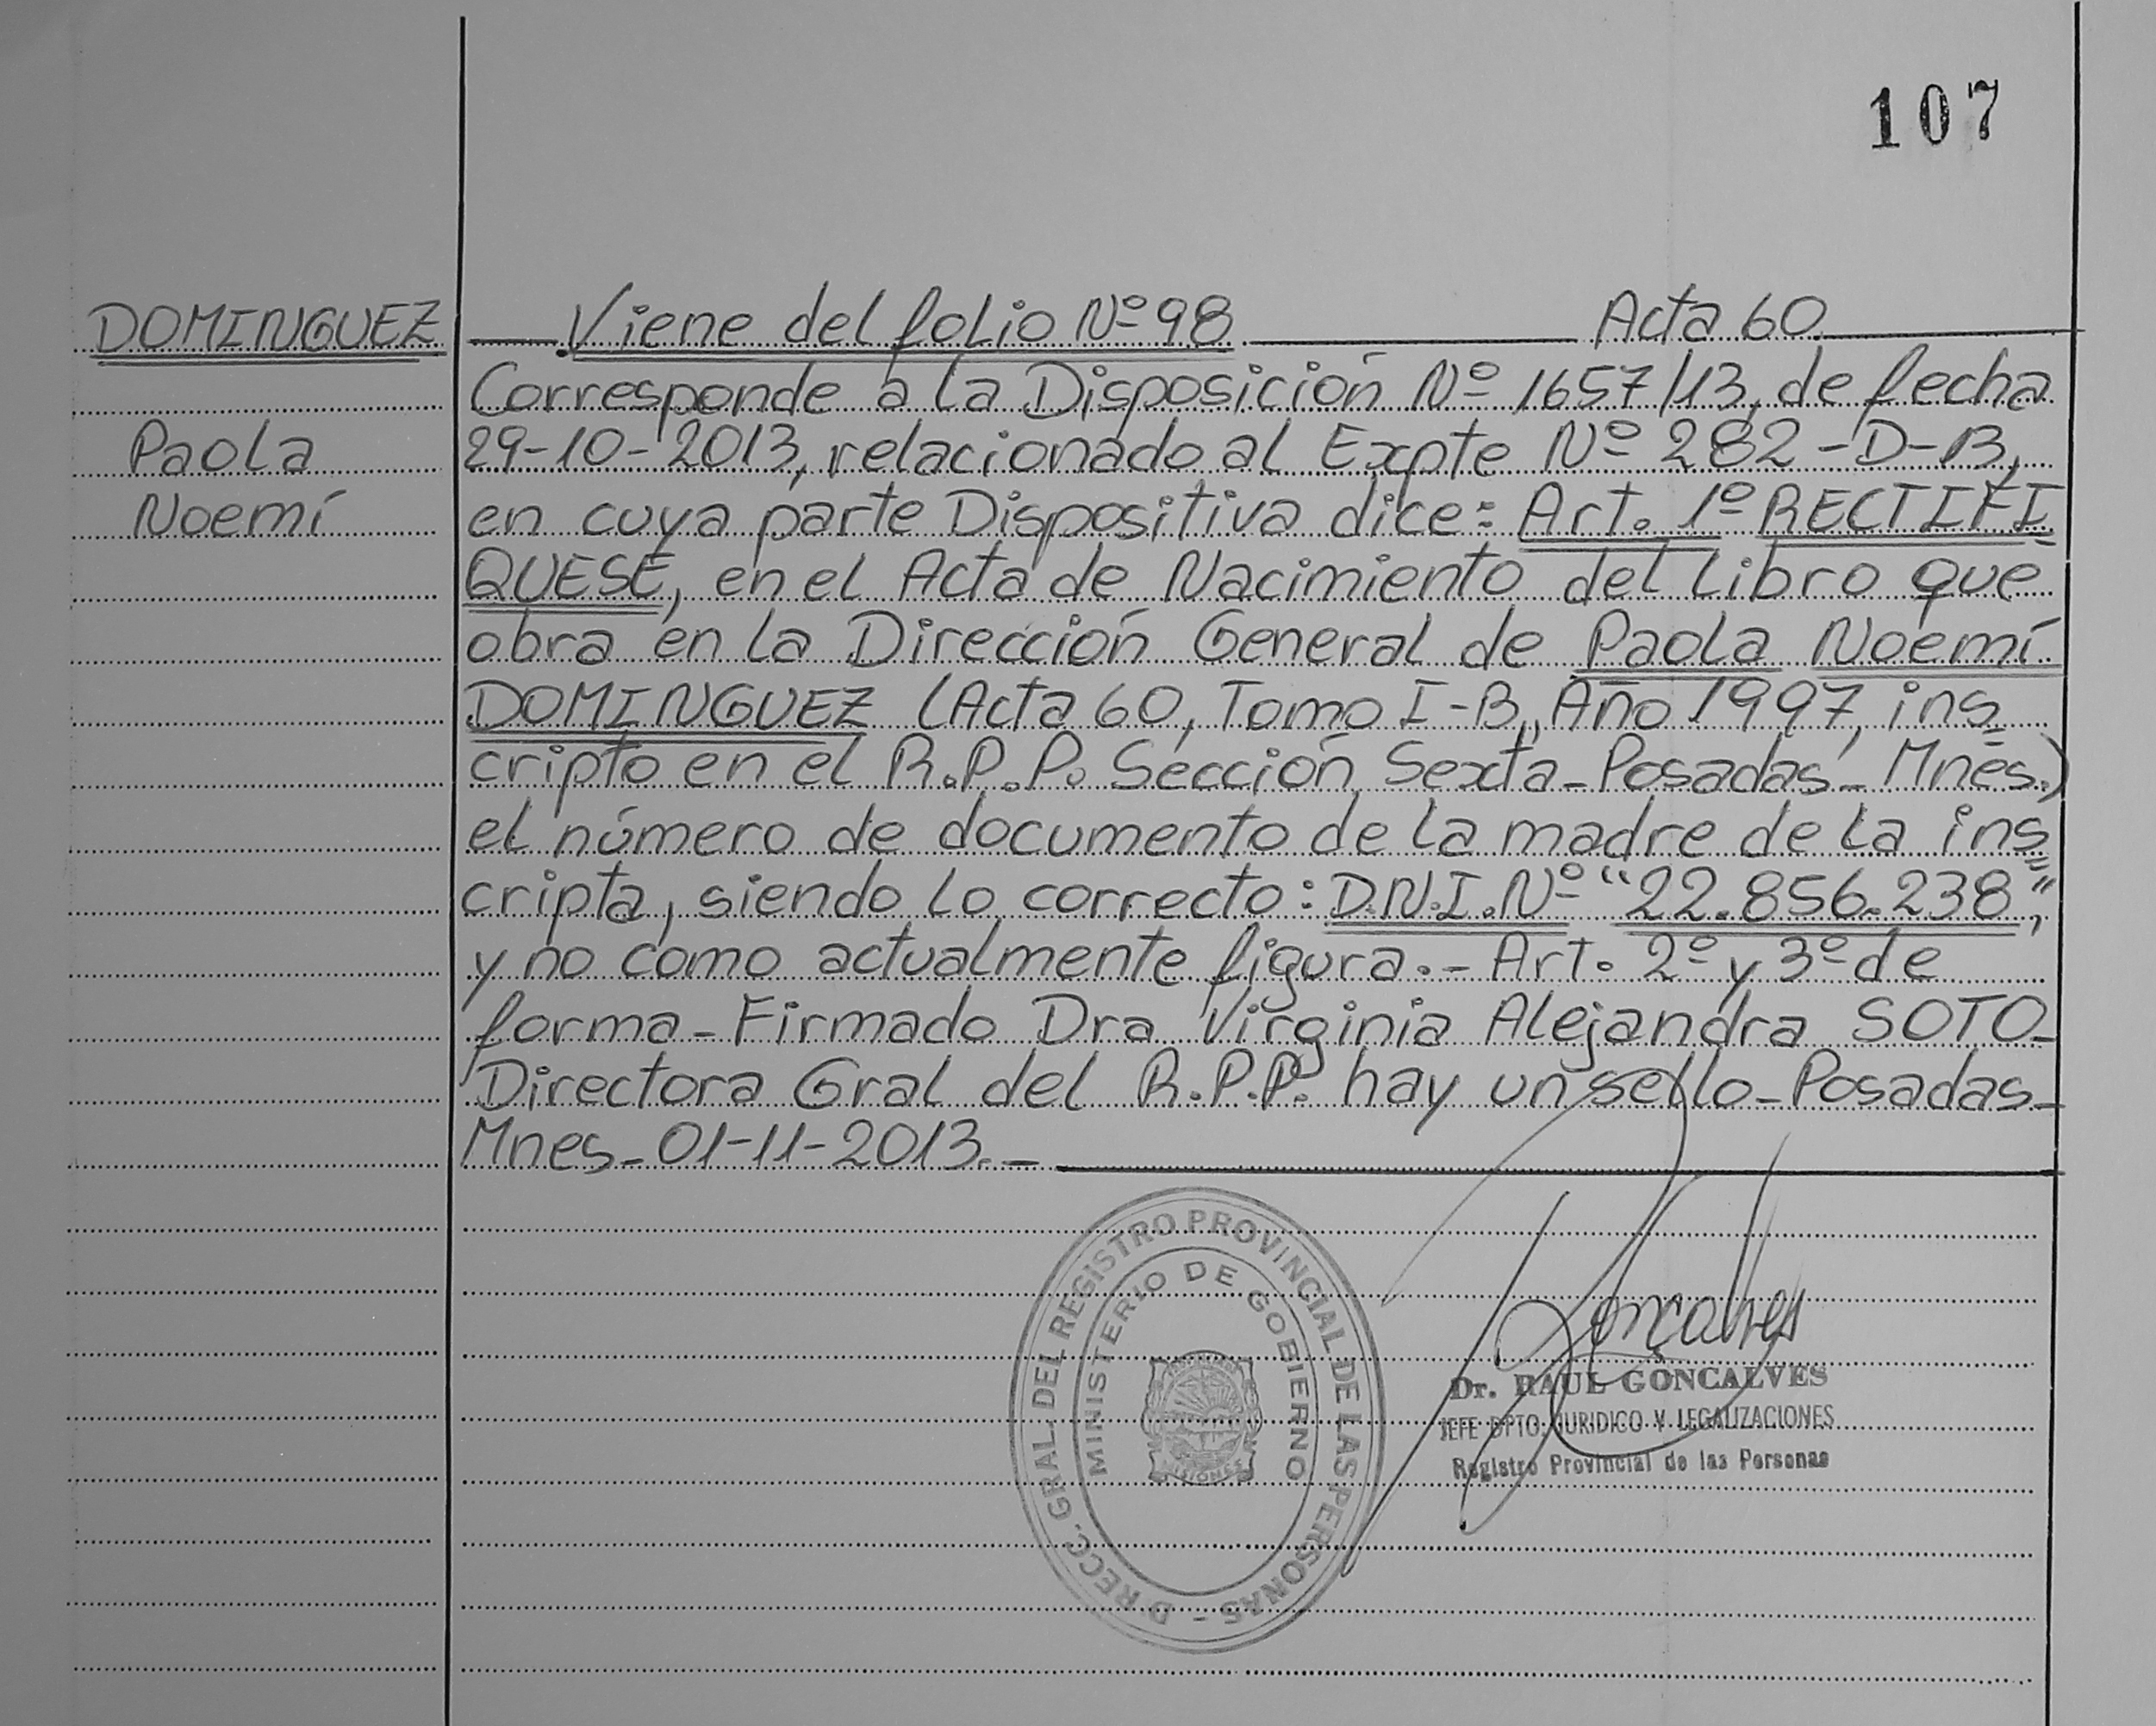 107
DOMINGUEZ
Paola
Noemí
Viene del folio Nº 98 Acta 60
Corresponde a la Disposición Nº 1657/13, de fecha
29-10-2013, relacionado al Expte Nº 282-D-B,
en cuya parte Dispositiva dice: Art. 1º RECTIFI
QUESE, en el Acta de Nacimiento del Libro que
obra en la Dirección General de Paola Noemí
DOMINGUEZ (Acta 60, Tomo I-B, Año 1997, ins
cripto en el R.P.P. Sección Sexta-Posadas-Mnes.)
el número de documento de la madre de la ins
cripta, siendo lo correcto: D.N.I. Nº "22.856.238",
y no como actualmente figura.- Art. 2º y 3º de
forma-Firmado Dra Virginia Alejandra SOTO-
Directora Gral del R.P.P. hay un sello-Posadas-
Mnes-01-11-2013.-
D RECC. GRAL. DEL REGISTRO PROVINCIAL DE LAS PERSONAS -
MINISTERIO DE GOBIERNO
MISIONES
Gonçalves
Dr. RAUL GONCALVES
JEFE DPTO. JURIDICO Y LEGALIZACIONES
Registro Provincial de las Personas